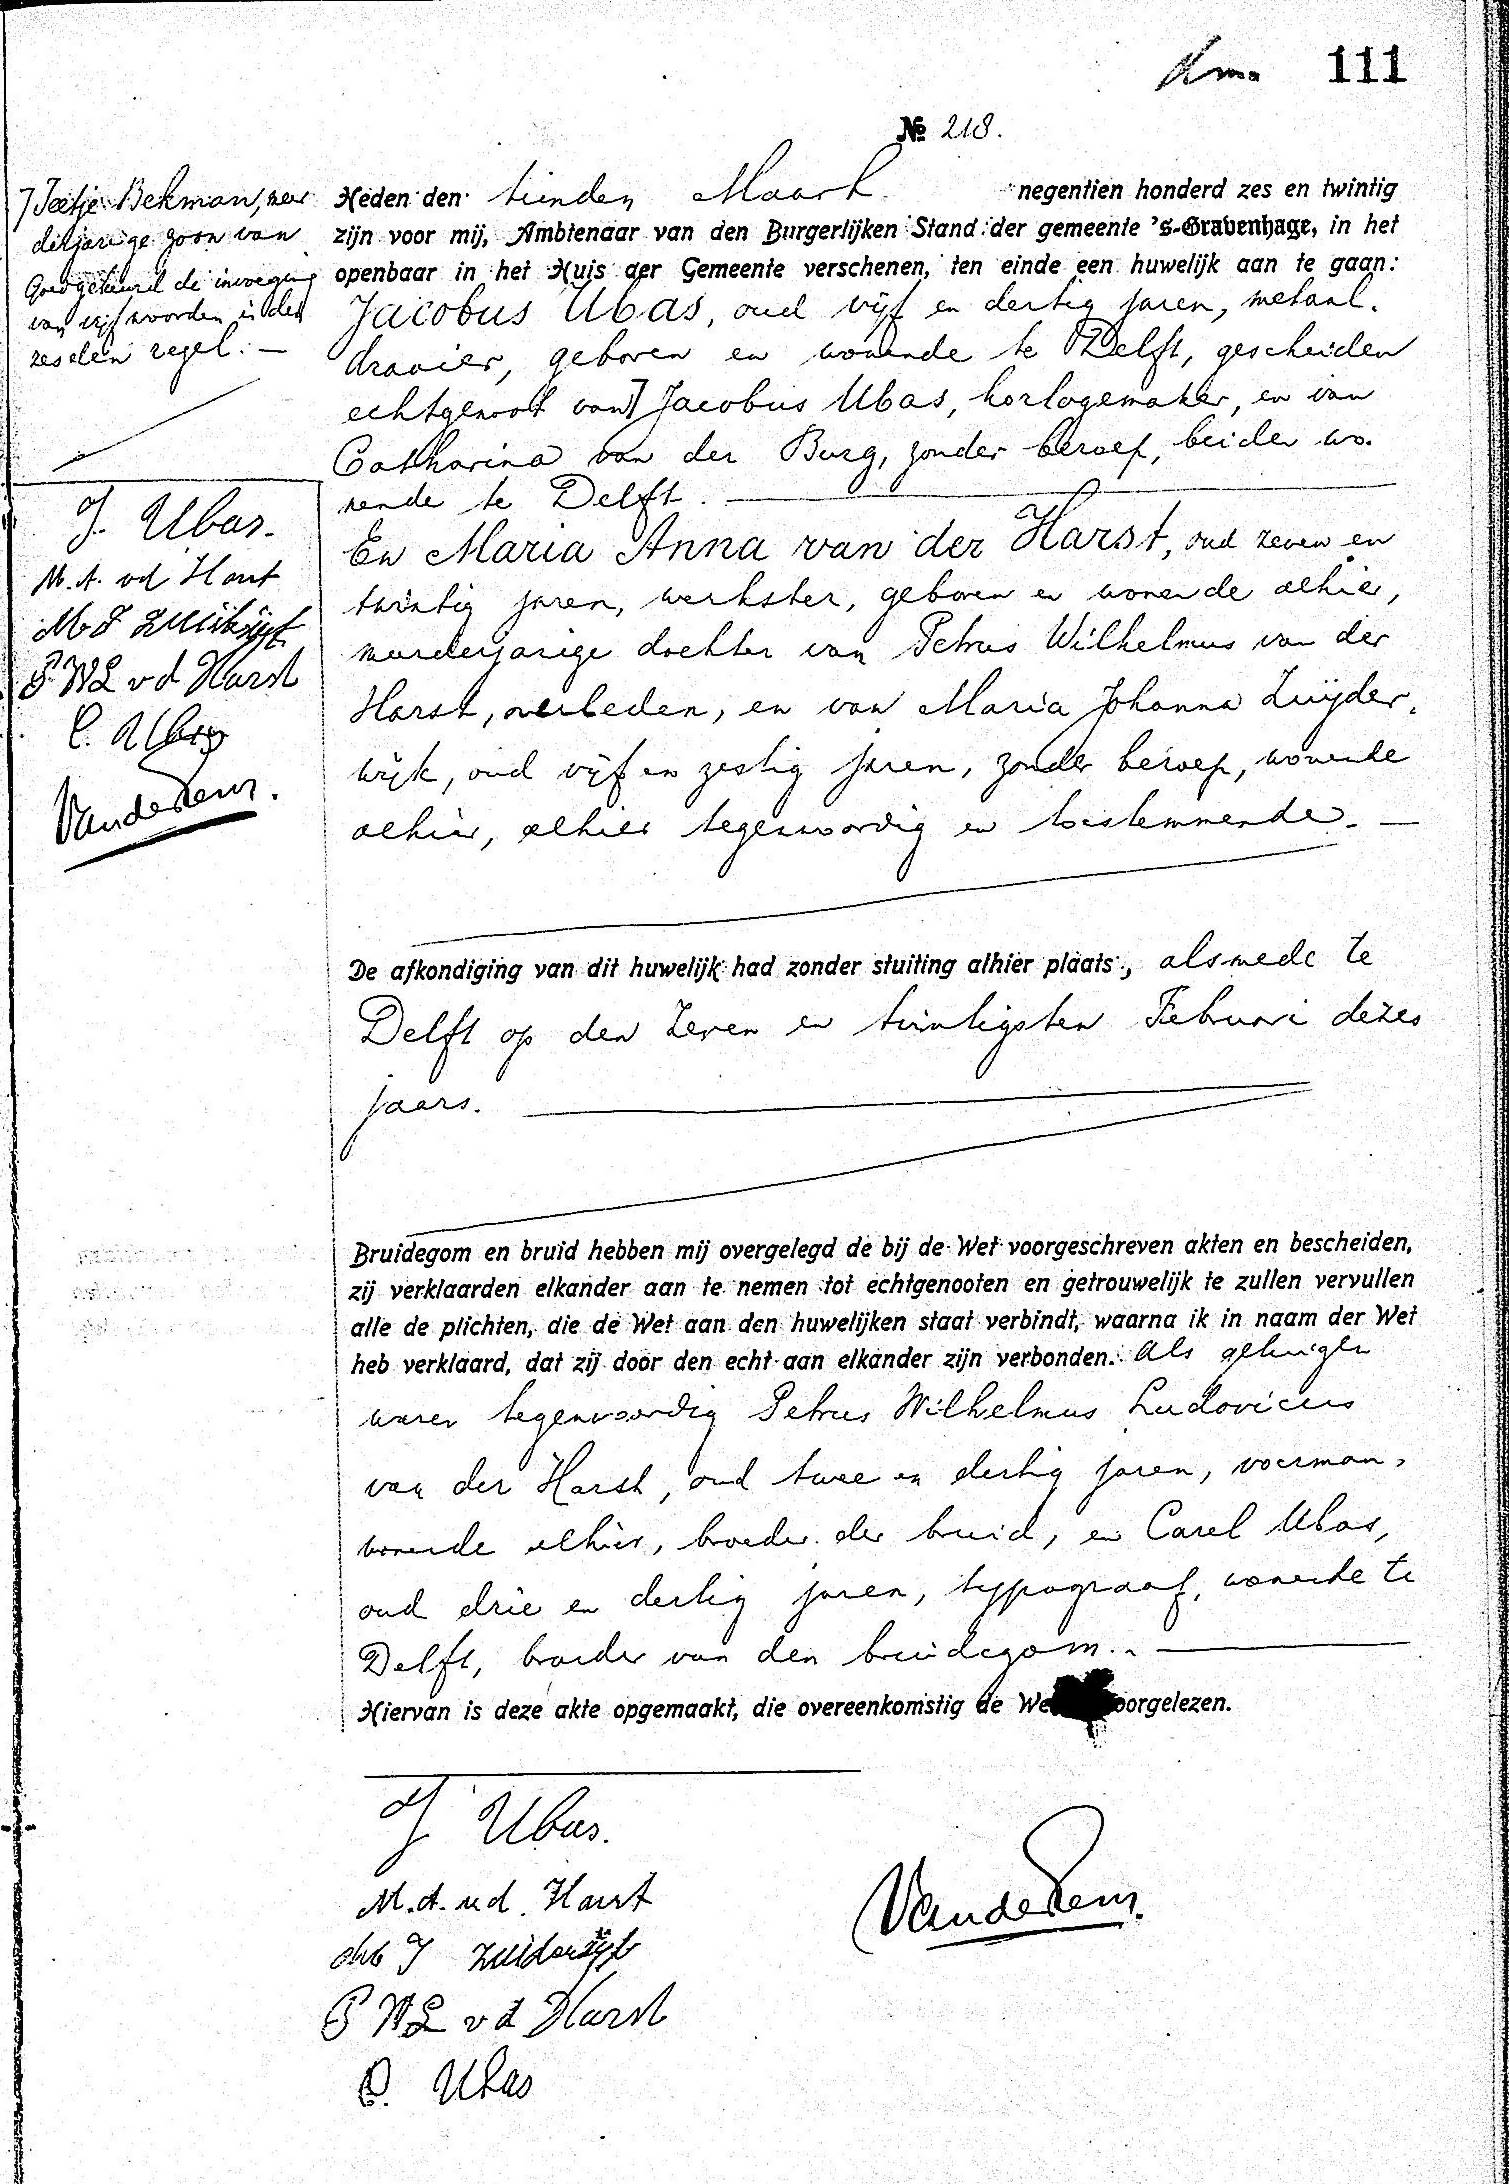 111
№ 218.
7 Jeetje Bekman, meer
derjarige zoon van
Goedgekeurd de invoeging
van vijf woorden in den
zesden regel. —
J. Ubas.
M. A. vd Harst
M J Zuiderwijk
P W L v d Harst
C. Ubas
Heden den tienden Maart negentien honderd zes en twintig
zijn voor mij, Ambtenaar van den Burgerlijken Stand der gemeente 's-Gravenhage, in het
openbaar in het Huis der Gemeente verschenen, ten einde een huwelijk aan te gaan:
Jacobus Ubas, oud vijf en dertig jaren, metaal-
draaier, geboren en wonende te Delft, gescheiden
echtgenoot van 7 Jacobus Ubas, horlogemaker, en van
Catharina van der Burg, zonder beroep, beiden wo-
nende te Delft. —
En Maria Anna van der Harst, oud zeven en
twintig jaren, werkster, geboren en wonende alhier,
meerderjarige dochter van Petrus Wilhelmus van der
Harst, overleden, en van Maria Johanna Zuijder-
wijk, oud vijf en zestig jaren, zonder beroep, wonende
alhier, alhier tegenwoordig en toestemmende. —
De afkondiging van dit huwelijk had zonder stuiting alhier plaats, alsmede te
Delft op den zeven en twintigsten Februari dezes
jaars.
Bruidegom en bruid hebben mij overgelegd de bij de Wet voorgeschreven akten en bescheiden,
zij verklaarden elkander aan te nemen tot echtgenooten en getrouwelijk te zullen vervullen
alle de plichten, die de Wet aan den huwelijken staat verbindt, waarna ik in naam der Wet
heb verklaard, dat zij door den echt aan elkander zijn verbonden. Als getuigen
waren tegenwoordig Petrus Wilhelmus Ludovicus
van der Harst, oud twee en dertig jaren, voerman,
wonende alhier, broeder der bruid, en Carel Ubas,
oud drie en dertig jaren, typograaf, wonende te
Delft, broeder van den bruidegom. —
Hiervan is deze akte opgemaakt, die overeenkomstig de We oorgelezen.
J Ubas.
M. A. v d. Harst
M J Zuiderwijk
P W L v d Harst
C. Ubas